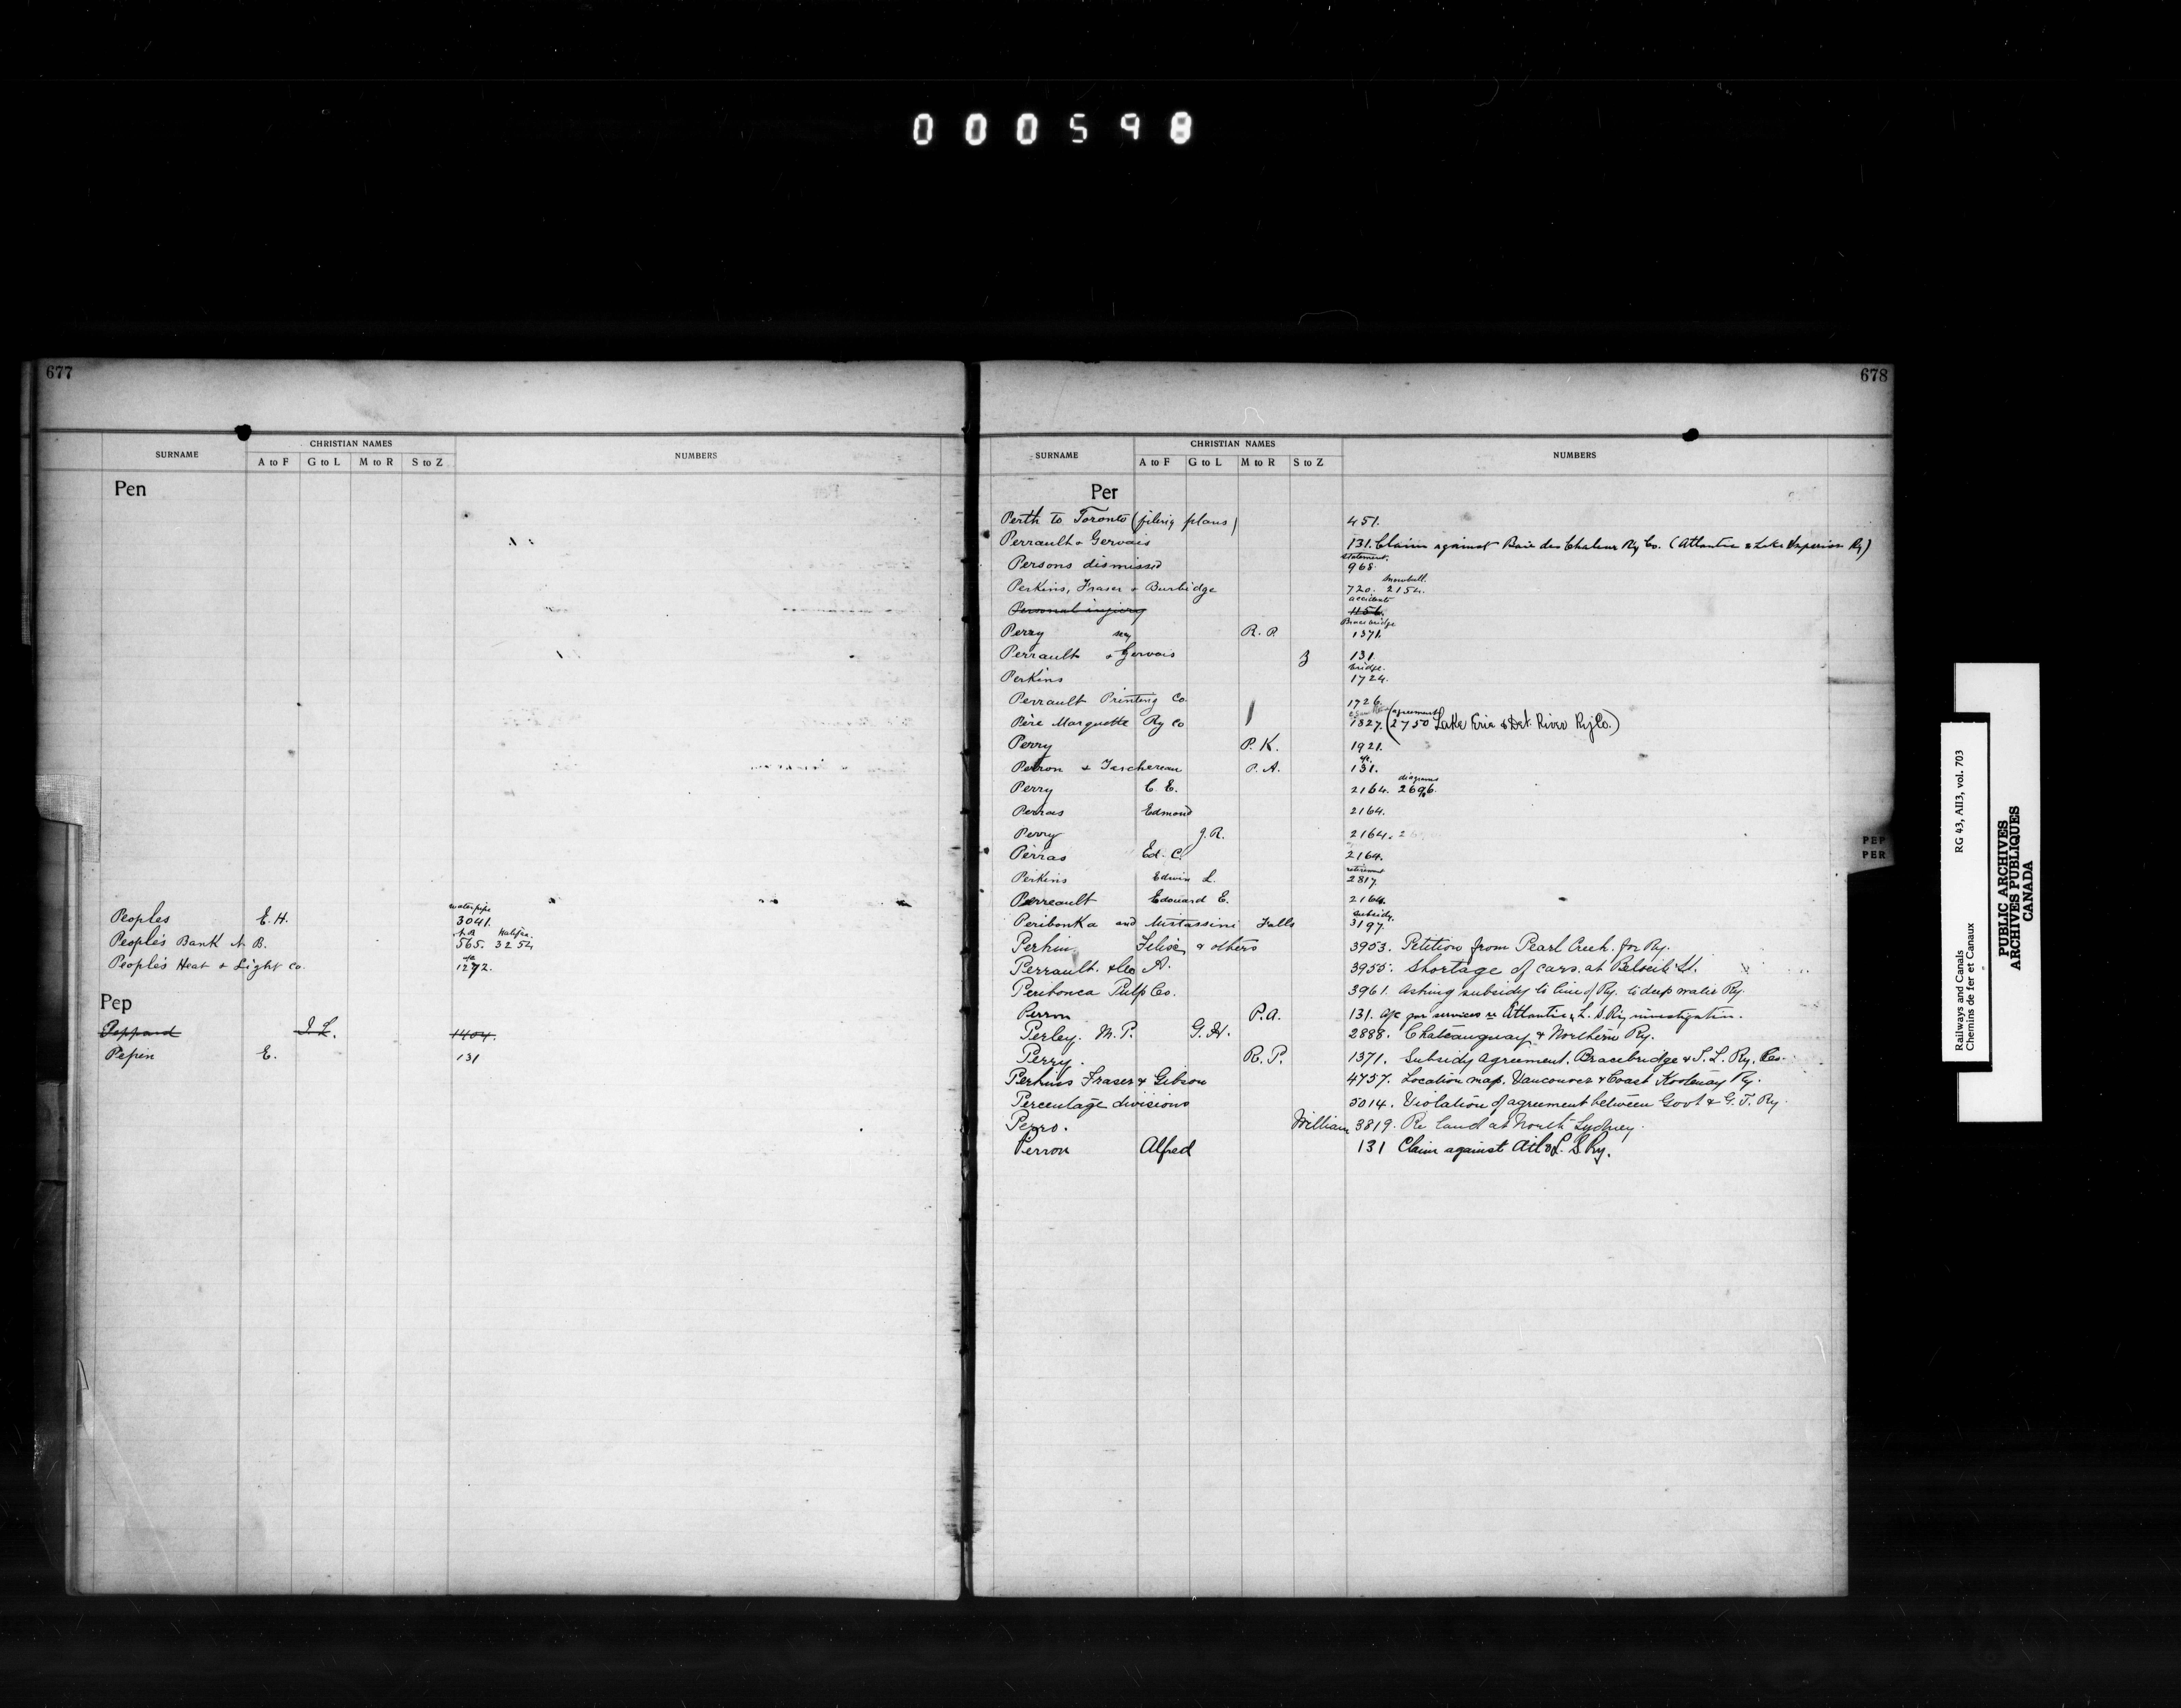 000598
677
SURNAME CHRISTIAN NAMES NUMBERS
A to F G to L M to R S to Z
Pen
waterpipe
Peoples E. H. 3041.
N.B. Halifax.
Peoples Bank N. B. 565. 3254
Peoples Heat & Light Co 1272.
Pep
Peppard I. L. 1404.
Pepin E. 131
678
SURNAME CHRISTIAN NAMES NUMBERS
A to F G to L M to R S to Z
Per
Perth to Toronto (filing plans) 451.
Perrault & Gervais 131. Claim against Baie des Chaleur Ry Co. (Atlantic & Lake Superior Ry)
statement.
Persons dismissed 968.
Snowball.
Perkins, Fraser & Burbidge 720. 2154.
accidents
Personal injury 1156.
Bracebridge
Perry R. P. 1371.
Perrault & Gervais 3 131.
bridge.
Perkins 1724.
Perrault Printing Co. 1726.
Père Marquette Ry Co 1327. (agreement 2750 Lake Erie & Det. River Ry Co.)
Perry P. K. 1921.
Perron & Taschereau P. A. 131.
diagrams
Perry C. E. 2164. 2696.
Perras Edmond 2164.
Perry J. R. 2164.
Perras Ed. C. 2164.
retirement
Perkins Edwin L. 2817.
Perreault Edouard E. 2164.
subsidy.
Peribonka and Mistassini Falls 3197.
Felix & others 3903. Petition from Pearl Creek for Ry.
Perrault & Co A. 3955. Shortage of cars at Beloeil St.
Peribonca Pulp Co. 3961. Asking subsidy to line of Ry. to deep water Ry.
Perron P.A. 131. a/c for services re Atlantic & L. S. Ry investigation.
Perley. M.P. G.H. 2888. Chateauguay & Northern Ry.
Perry. R.P. 1371. Subsidy agreement. Bracebridge & T. L. Ry. Co.
Perkins Fraser & Gibson 4757. Location map. Vancouver & Coast Kootenay Ry.
Percentage divisions 5014. Violation of agreement between Govt & G. T. Ry.
Perro. William 3819. Re land at North Sydney.
Perron Alfred 131 Claim against Atl & L. S Ry.
PEP
PER
Railways and Canals RG 43, AII3, vol. 703
Chemins de fer et Canaux
PUBLIC ARCHIVES
ARCHIVES PUBLIQUES
CANADA